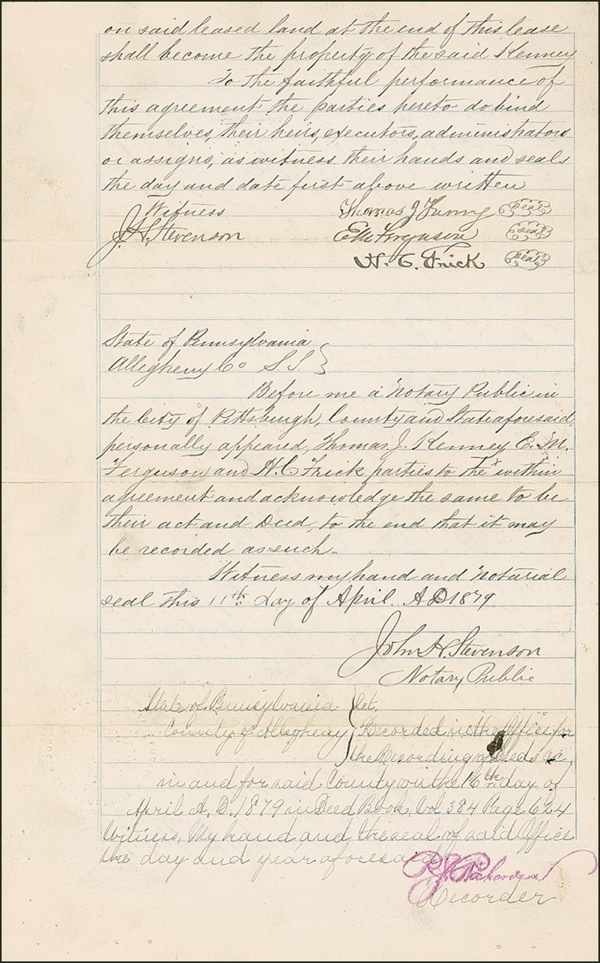 on said leased land at the end of this lease
shall become the property of the said Kenney
To the faithful performance of
this agreement the parties hereto do bind
themselves, their heirs, executors, administrators
or assigns, as witness their hands and seals
the day and date first above written
Witness
Thomas J Kenney Seal
J. H. Stevenson
E M Ferguson Seal
H. C. Frick Seal
State of Pennsylvania
Allegheny Co S.S. }
Before me a Notary Public in
the City of Pittsburgh, County and State aforesaid,
personally appeared, Thomas J. Kenney E. M.
Ferguson and H. C Frick parties to the within
agreement and acknowledge the same to be
their act and Deed, to the end that it may
be recorded as such.
Witness my hand and Notarial
seal this 11th Day of April. A D 1879
John H. Stevenson
Notary Public
State of Pennsylvania
County of Allegheny
Recorded in the Office for
the Recording of deeds &c.
in and for said County on the 16th day of
April A. D. 1879 in Deed Book, Vol 384 Page 624
Witness, My hand and the seal of said Office
the day and year aforesaid
Recorder